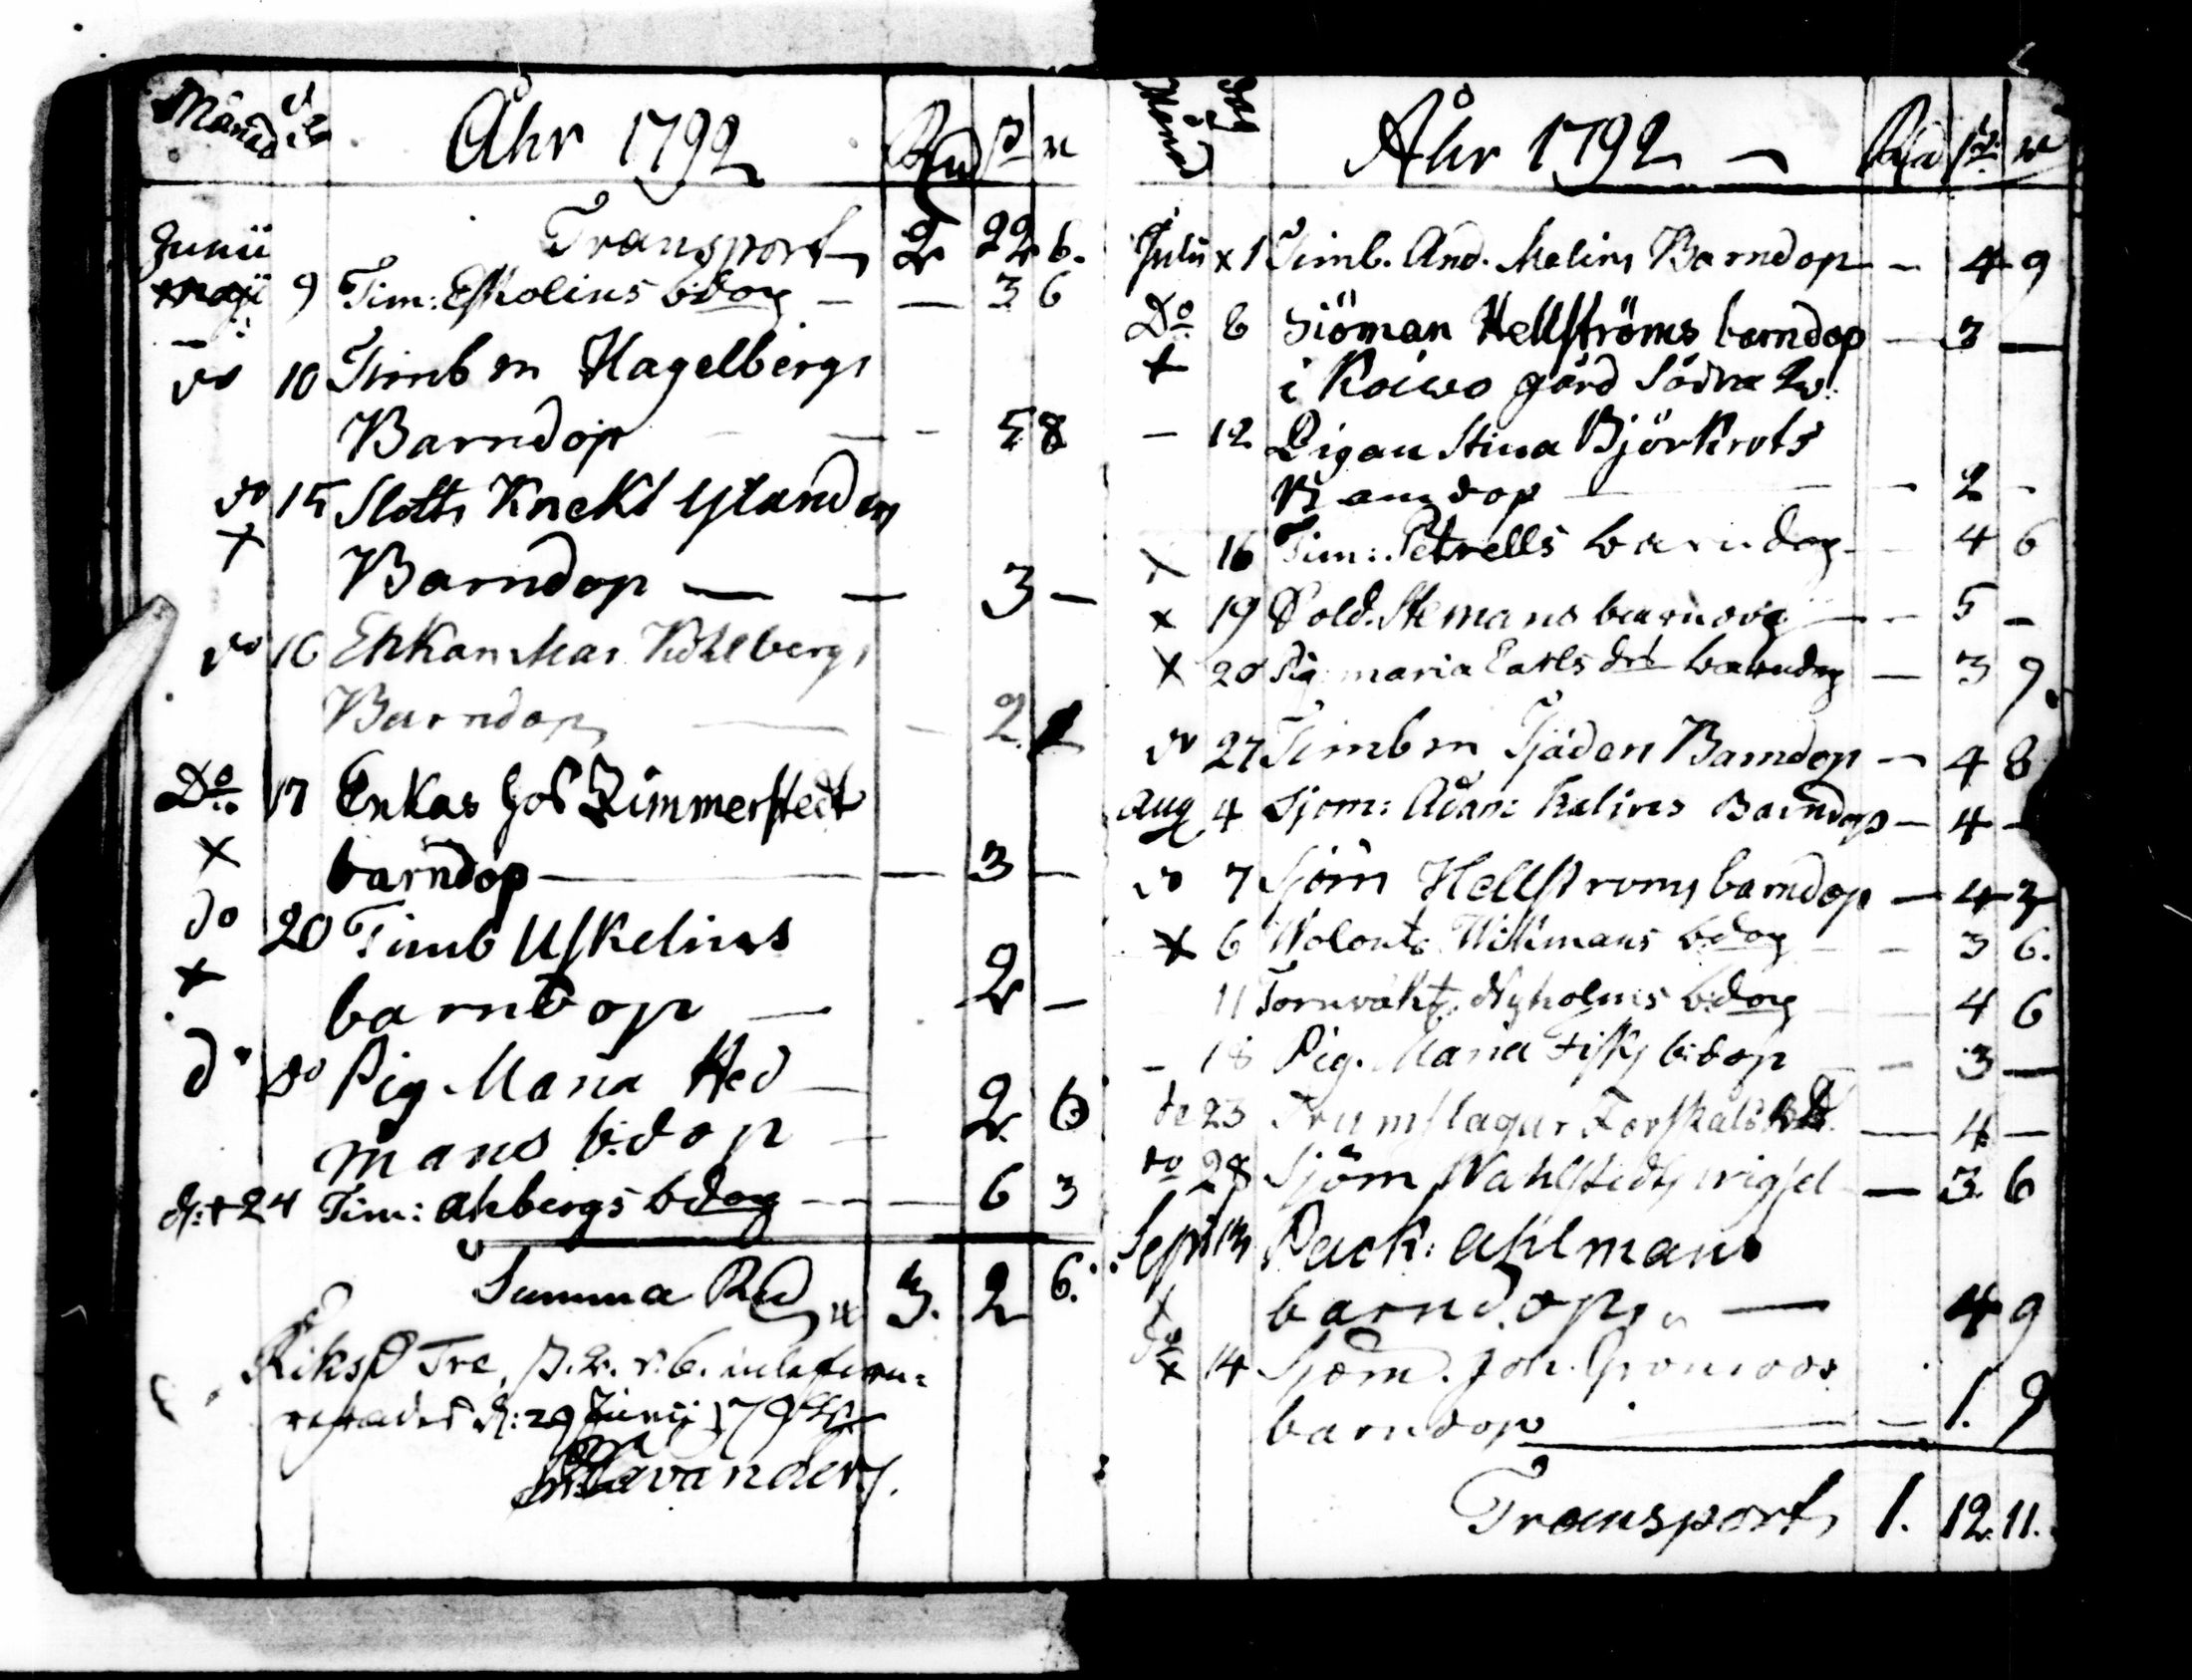 Månad Åhr 1792 Rd ß r
Junii Transport 2 22 6.
9 Tim: Eskolins bdop — — 3 6
do 10 Timbm Hagelbergs
Barndop — — 5 8
do 15 Slotts Knekt Ylanders
x Barndop — — 3 —
do 16 Enkan Mar. Kohlbergs
Barndop — — 2
Do 17 Enkas Zimmerstedt
x barndop — — 3 —
do 20 Timb Uskelins
x barndop — 2 —
do do Pig Maria Hed — 2 6
mans b:dop —
d: + 24 Tim: Ahbergs bdop — — 6 3
Summa Rd 3. 2 6.
Riksd Tre, ß. 2. r. 6.
d: 29 Junii 1792
Cavander.
Månad dag Åhr 1792 — Rd ß r
Julii x 1 Timb. And. Melins Barndop — 4 9
Do 6 Siöman Hellströms barndop — 3 —
+ i Koiwo gård Södra Qv:
— 12 Pigan Stina Björkrots
Barndop — — 2 -
x 16 Tim: Petrells barndop — 4 6
x 19 Sold. Stemans barndop — 5 -
x 20 Pig maria Carls dr barndop — 3 9
do 27 Timbm Tjäders Barndop — 4 8
Aug 4 Sjöm: Adam Kalins Barndop — 4 -
do 7 Sjöm Hellströms barndop — 4 3
x 6 Wolont. Wikmans bdop — 3 6.
11 Tornväkt. Nyholms b:dop — 4 6
- 18 Pig. Maria Fisks b:dop — 3 —
de 23 Trumslagar Forskåls — 4 —
do 28 Sjöm Wahlstedts vigsel — 3. 6
Sept 13 Pack: Ahlmans
x barndop — 4 9
do x 14 Sjöm. Joh. Grönroos
barndop — — 1. 9
Transport 1. 12. 11.